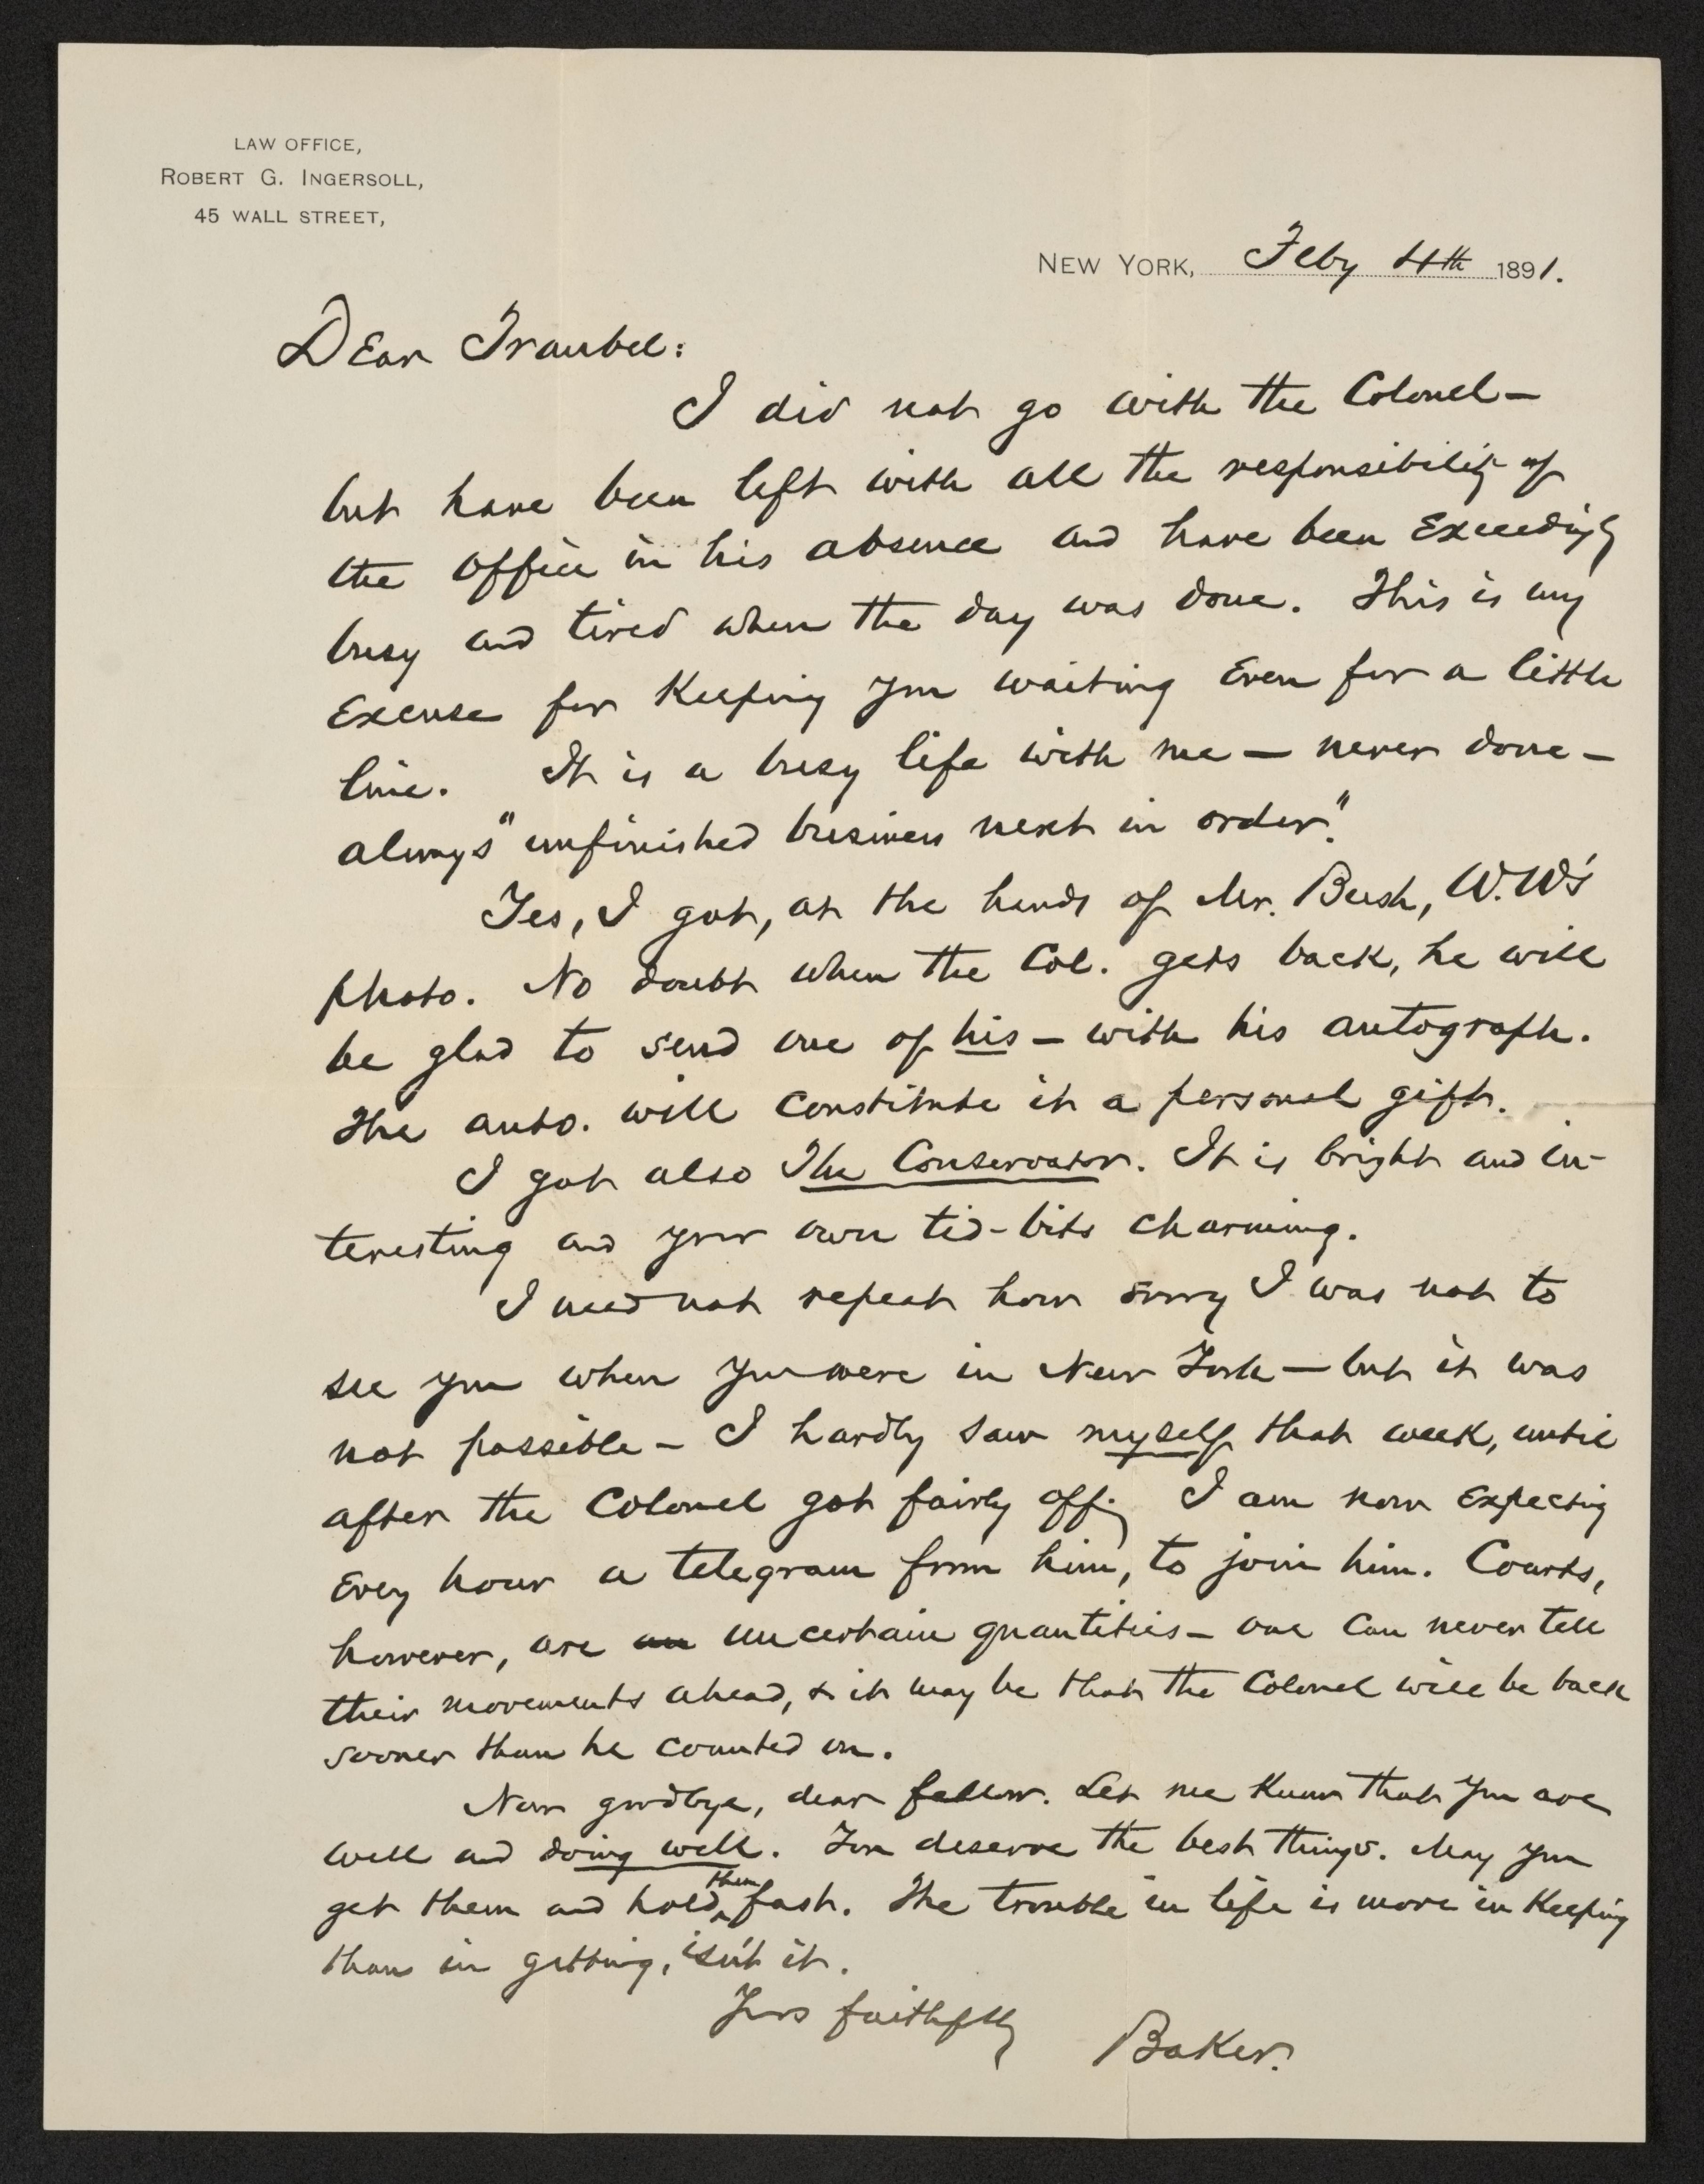 LAW OFFICE,
ROBERT G. INGERSOLL,
45 WALL STREET,
NEW YORK, Feby 4th 1891.
Dear Traubel:
I did not go with the Colonel —
but have been left with all the responsibility of
the office in his absence and have been exceedingly
busy and tired when the day was done. This is my
excuse for keeping you waiting even for a little
line. It is a busy life with me — never done —
always "unfinished business next in order."
Yes, I got, at the hands of Mr. Bush, W.W's
photo. No doubt when the Col. gets back, he will
be glad to send one of his — with his autograph.
The auto. will constitute it a personal gift.
I got also The Conservator. It is bright and in-
teresting and your own tid-bits charming.
I need not repeat how sorry I was not to
see you when you were in New York — but it was
not possible — I hardly saw myself that week, until
after the Colonel got fairly off. I am now expecting
every hour a telegram from him, to join him. Courts,
however, are an uncertain quantities — one can never tell
their movements ahead, & it may be that the Colonel will be back
sooner than he counted on.
Now goodbye, dear fellow. Let me know that you are
well and doing well. You deserve the best things. May you
get them and hold them fast. The trouble in life is more in keeping
than in getting, isn't it.
Yrs faithfully
Baker.